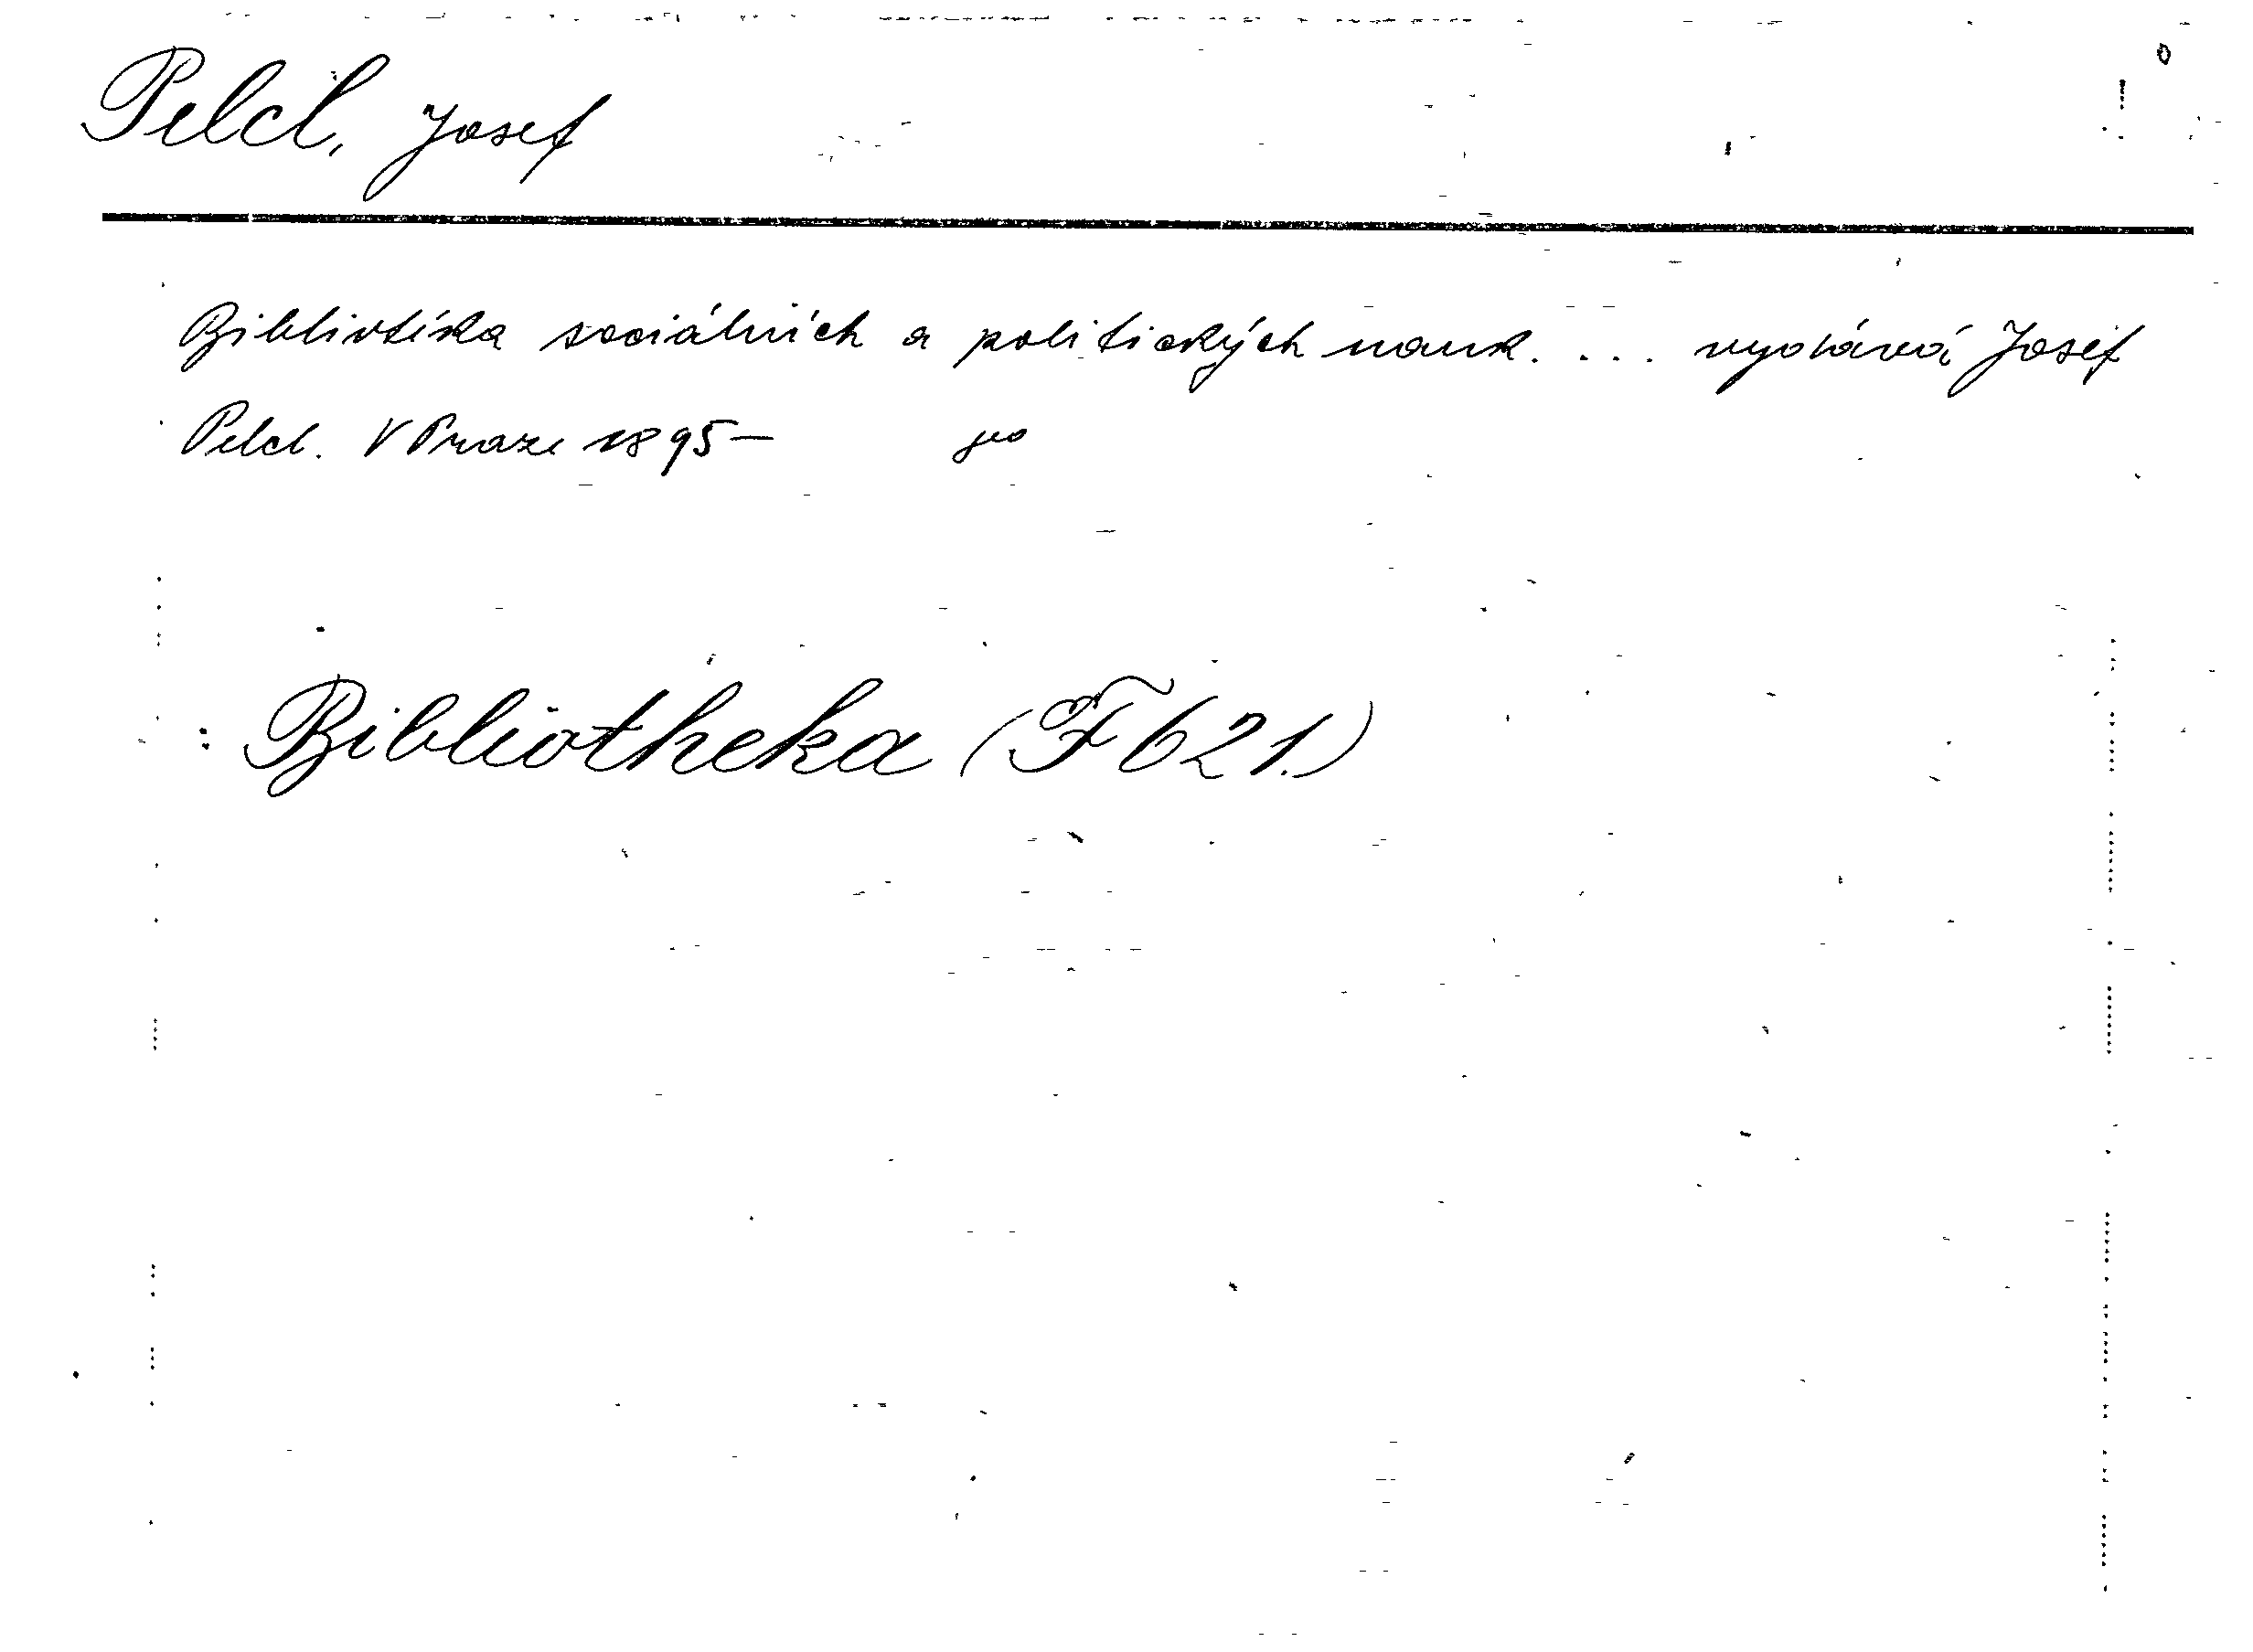 Pelcl, Josef
Biblivtéka sociálních a politických nauk. ... vydává Josef
Pelcl. V Praze 1895— 8°
: Bibliotheka (F 621.)